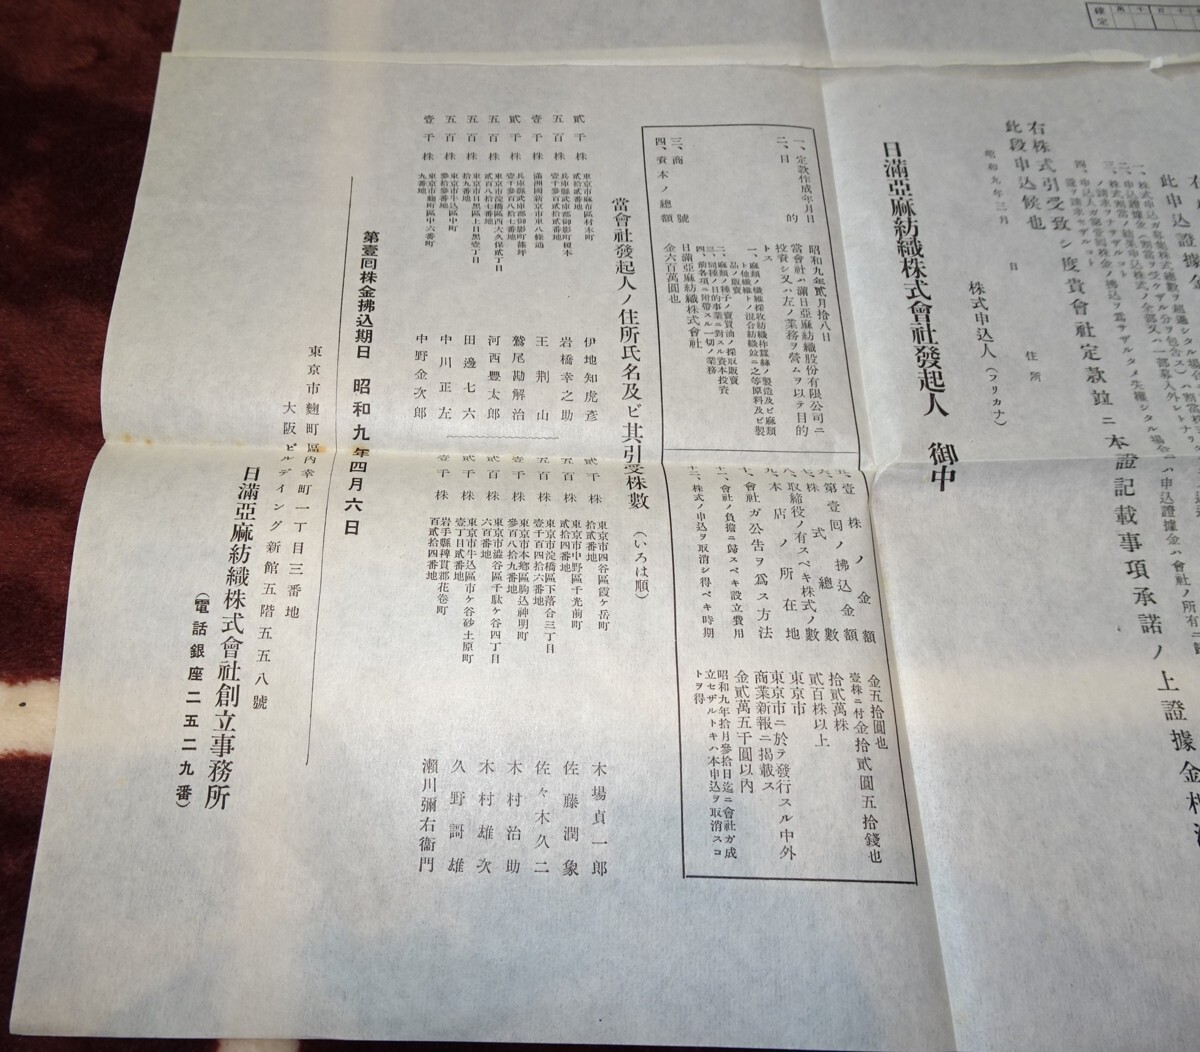 確定
此申込證據金
一、株式申込ガ募集株式總數ヲ超過シタル場合
四、申込人ガ
本證記載事項承諾ノ上證據金相
右株式引受致シ度貴會社定款竝ニ
此段申込候也
昭和九年三月　日
住所
株式申込人（フリカナ）
日滿亞麻紡織株式會社發起人　御中
一、定款作成年月日　昭和九年貳月拾八日
二、目的　當會社ハ滿日亞麻紡織股份有限公司ニ
投資シ又ハ左ノ業務ヲ營ムヲ以テ目的
トス
一、麻類ノ纖維採收紡織作蠶絲ノ製造及ビ麻類
ト他纖維トノ混合紡織竝ニ之等原料及ビ製
品ノ販賣
二、麻類ノ種子ノ賣買油ノ採取販賣
三、同種ノ目的事業ニ對スル資本投資
四、前各項ニ附帶スル一切ノ業務
三、商號　日滿亞麻紡織株式會社
四、資本ノ總額　金六百萬圓也
五、壹株ノ金額　金五拾圓也
六、第壹囘ノ拂込金額　壹株ニ付金拾貳圓五拾錢也
七、株式總數　拾貳萬株
八、取締役ノ有スベキ株式ノ數　貳百株以上
九、本店ノ所在地　東京市
十、會社ガ公告ヲ爲ス方法　東京市ニ於テ發行スル中外
商業新報ニ揭載ス
十一、會社ノ負擔ニ歸スベキ設立費用　金貳萬五千圓以內
十二、株式ノ申込ヲ取消シ得ベキ時期　昭和九年拾月參拾日迄ニ會社ガ成
立セザルトキハ本申込ヲ取消スコ
トヲ得
當會社發起人ノ住所氏名及ビ其引受株數　（いろは順）
貳千株　東京市麻布區材木町
貳拾貳番地　伊地知虎彦
五百株　兵庫縣武庫郡御影町榎本
壹千參百貳拾貳番地　岩橋幸之助
壹千株　滿洲國新京市東八條通　王荆山
貳千株　兵庫縣武庫郡御影町藤坪
壹千參百八拾七番地　鷲尾勘解治
五百株　東京市淀橋區西大久保貳丁目
貳百八拾七番地　河西豐太郎
五百株　東京市目黑區上目黑壹丁目
拾九番地　田邊七六
五百株　東京市牛込區中町
參拾參番地　中川正左
壹千株　東京市麴町區中六番町
九番地　中野金次郎
貳千株　東京市四谷區霞ヶ岳町
拾貳番地　木場貞一郎
五百株　東京市中野區千光前町
貳拾四番地　佐藤潤象
五百株　東京市淀橋區下落合三丁目
壹千百四拾六番地　佐々木久二
壹千株　東京市本鄕區駒込神明町
參百八拾九番地　木村治助
貳千株　東京市澁谷區千駄ヶ谷四丁目
六百番地　木村雄次
貳千株　東京市牛込區市ヶ谷砂土原町
壹丁目貳番地　久野謌雄
壹千株　岩手縣稗貫郡花卷町
百貳拾四番地　瀨川彌右衞門
第壹囘株金拂込期日　昭和九年四月六日
東京市麴町區內幸町一丁目三番地
大阪ビルデイング新館五階五五八號
日滿亞麻紡織株式會社創立事務所
（電話銀座二五二九番）